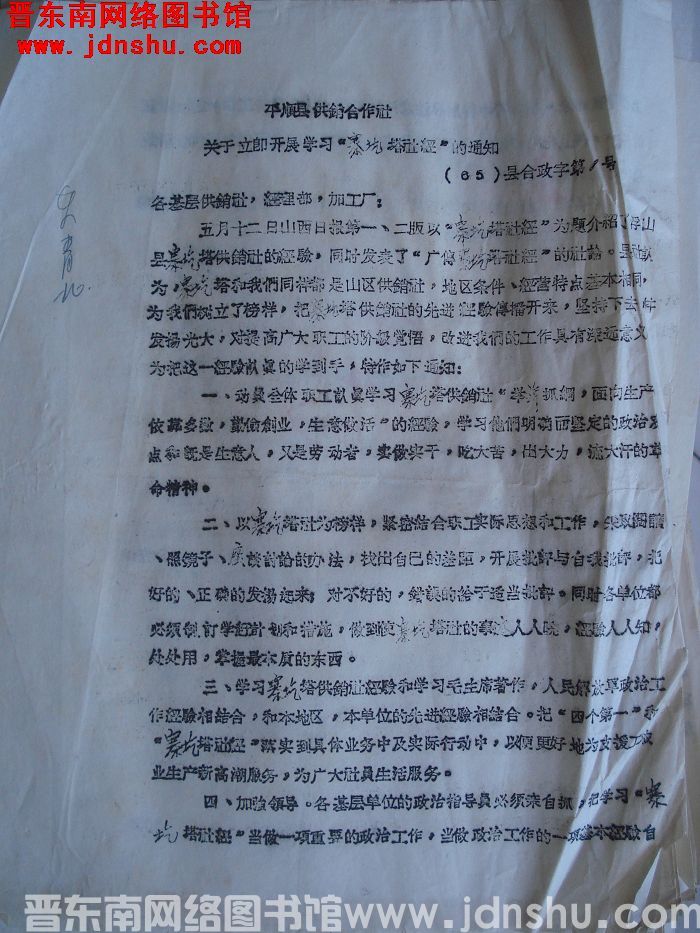 晋东南网络图书馆
www.jdnshu.com
平順县供銷合作社
关于立即开展学习“寨圪塔社經”的通知
(65)县合政字第1号
各基层供銷社，經理部，加工厂：
五月十二日山西日报第一、二版以“寨圪塔社經”为題介紹了浮山
县寨圪塔供銷社的經驗，同时发表了“广傳寨圪塔社經”的社論。县社認
为，寨圪塔和我們同样都是山区供銷社，地区条件、經营特点基本相同，
为我們树立了榜样，把寨圪塔供銷社的先进經驗傳播开来，坚持下去并
发揚光大，对提高广大职工的阶級觉悟，改进我們的工作具有深远意义
为把这一經驗認真的学到手，特作如下通知：
一、动員全体职工認真学习寨圪塔供銷社“举 抓綱，面向生产
依靠多数，勤儉創业，生意做活”的經驗，学习他們明确而坚定的政治观
点和既是生意人，又是劳动者，实做实干，吃大苦，出大力，流大汗的革
命精神。
二、以寨圪塔社为榜样，紧密结合职工实际思想和工作，采取閱讀
、照鏡子、座談討論的办法，找出自己的差距，开展批評与自我批評，把
好的、正确的发揚起来；对不好的，錯誤的給于适当批評。同时各单位都
必須制訂学習計划和措施，做到使寨圪塔社的事迹人人曉，經驗人人知，
处处用，掌握最本质的东西。
三、学习寨圪塔供銷社經驗和学习毛主席著作，人民解放軍政治工
作經驗相结合，和本地区，本单位的先进經驗相结合。把“四个第一”和
“寨圪塔社經”落实到具体业务中及实际行动中，以便更好地为支援工农
业生产新高潮服务，为广大社員生活服务。
四、加強领导。各基层单位的政治指导員必須亲自抓，把学习“寨
圪塔社經”当做一项重要的政治工作，当做政治工作的一项基本經驗自
晋东南网络图书馆 www.jdnshu.com